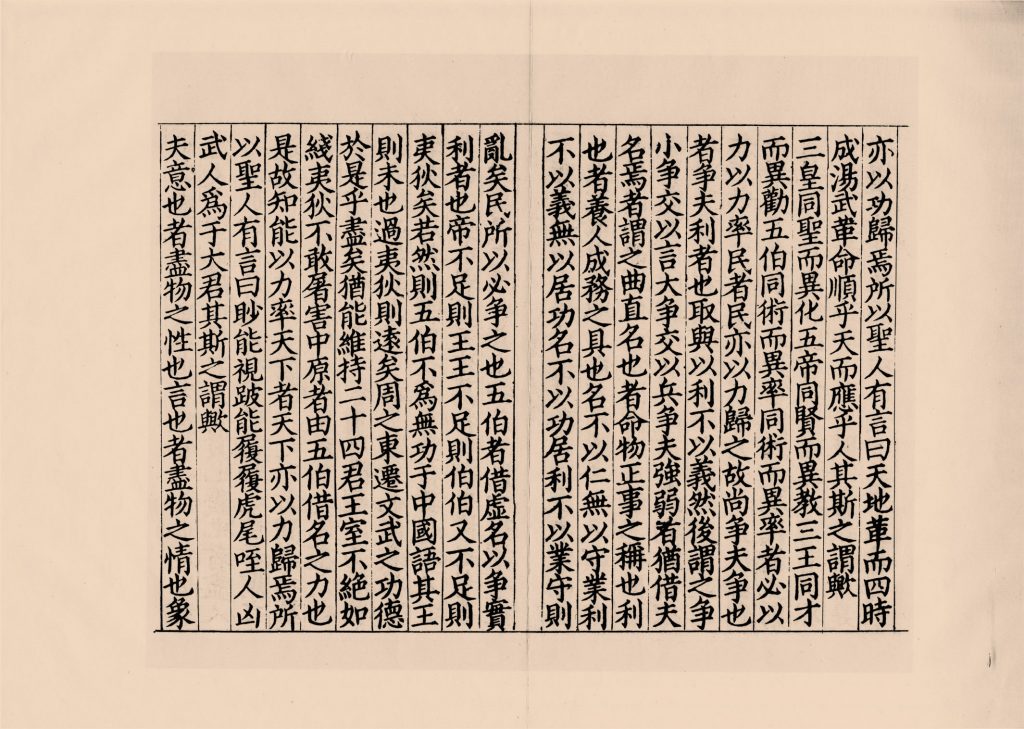 亦以功歸焉所以聖人有言曰天地革而四時
成湯武革命順乎天而應乎人其斯之謂歟
三皇同聖而異化五帝同賢而異教三王同才
而異勸五伯同術而異率同術而異率者必以
力以力率民者民亦以力歸之故尚爭夫爭也
者爭夫利者也取與以利不以義然後謂之爭
小爭交以言大爭交以兵爭夫強弱者猶借夫
名焉者謂之曲直名也者命物正事之稱也利
也者養人成務之具也名不以仁無以守業利
不以義無以居功名不以功居利不以業守則
亂矣民所以必爭之也五伯者借虛名以爭實
利者也帝不足則王王不足則伯伯又不足則
夷狄矣若然則五伯不爲無功于中國語其王
則未也過夷狄則遠矣周之東遷文武之功德
於是乎盡矣猶能維持二十四君王室不絕如
綫夷狄不敢屠害中原者由五伯借名之力也
是故知能以力率天下者天下亦以力歸焉所
以聖人有言曰眇能視跛能履履虎尾咥人凶
武人爲于大君其斯之謂歟
夫意也者盡物之性也言也者盡物之情也象